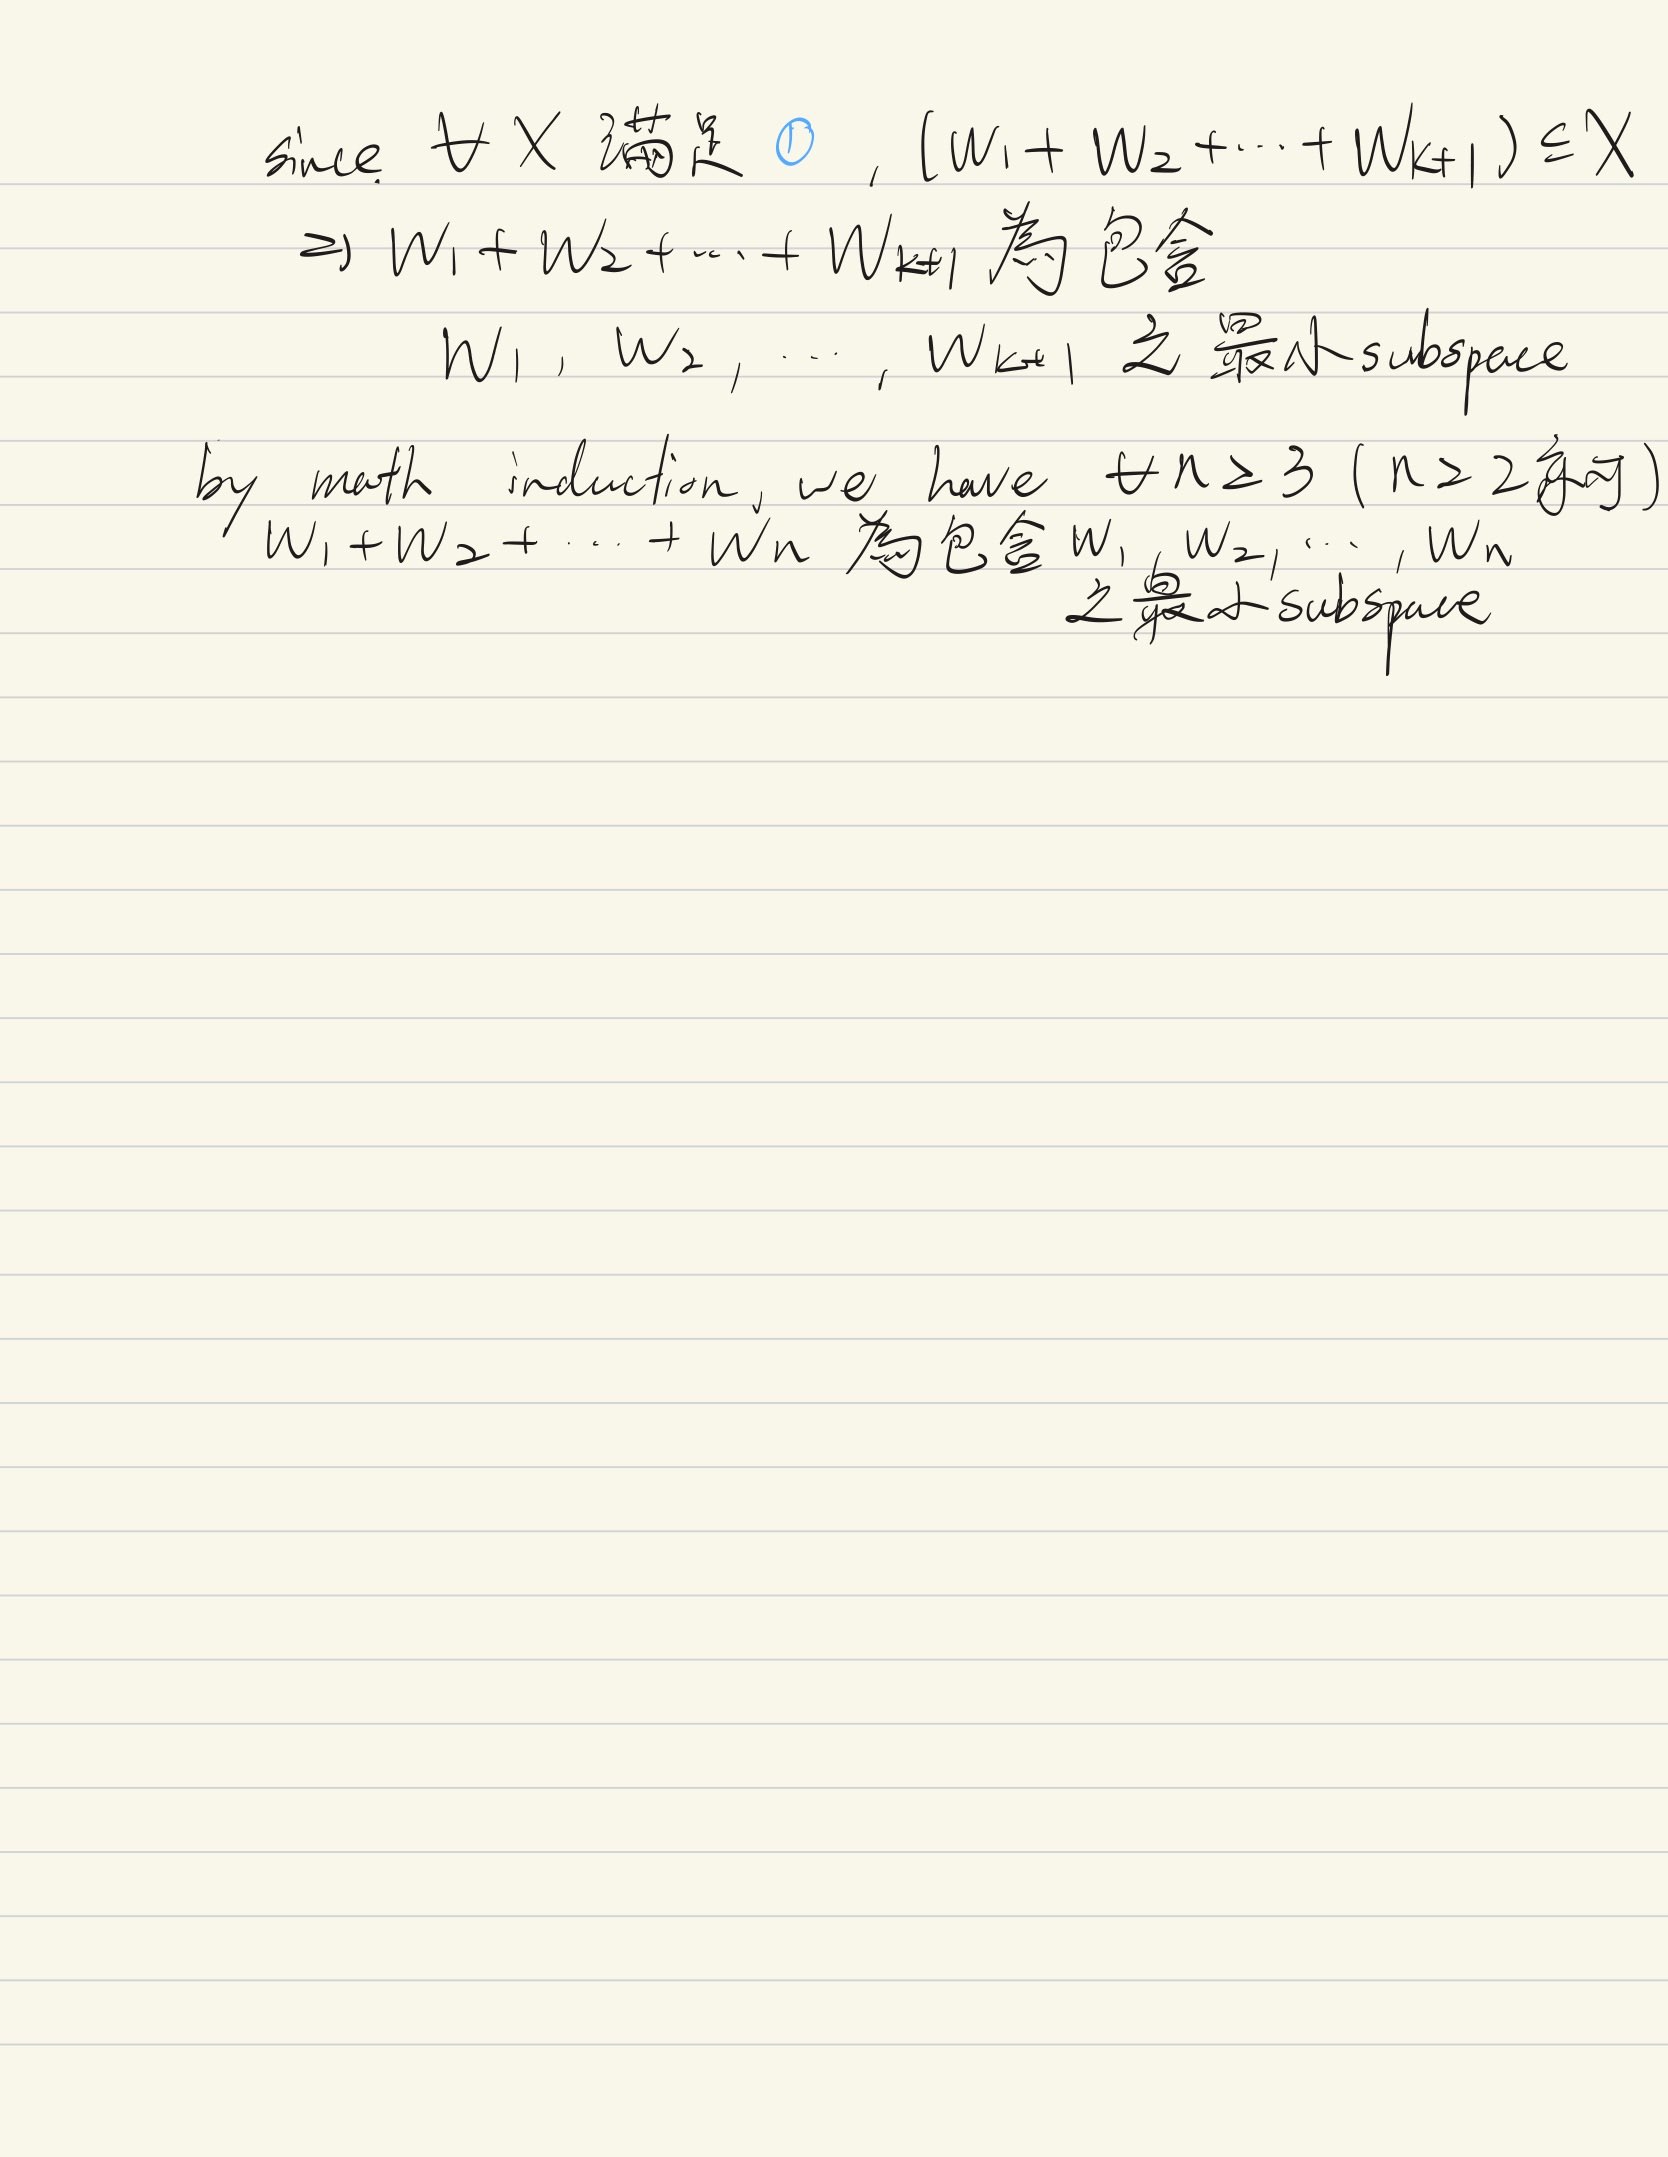 since ∀ X 滿足 ①, (W₁ + W₂ + ... + Wₖ₊₁) ⊆ X
⇒ W₁ + W₂ + ... + Wₖ₊₁ 為包含
W₁, W₂, ..., Wₖ₊₁ 之最小 subspace
by math induction, we have ∀ n ≥ 3 (n ≥ 2 亦可)
W₁ + W₂ + ... + Wₙ 為包含 W₁, W₂, ..., Wₙ
之最小 subspace